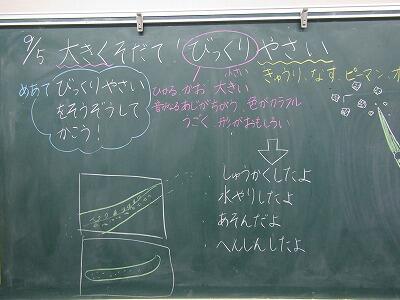 9/5 大きくそだて!びっくりやさい
きゅうり、なす、ピーマン、オ
めあて
びっくりやさい
をそうぞうして
かこう!
小さい
ひかる かお 大きい
音がなる あじがちがう 色がカラフル
うごく 形がおもしろい
・しゅうかくしたよ
・水やりしたよ
・あそんだよ
・へんしんしたよ